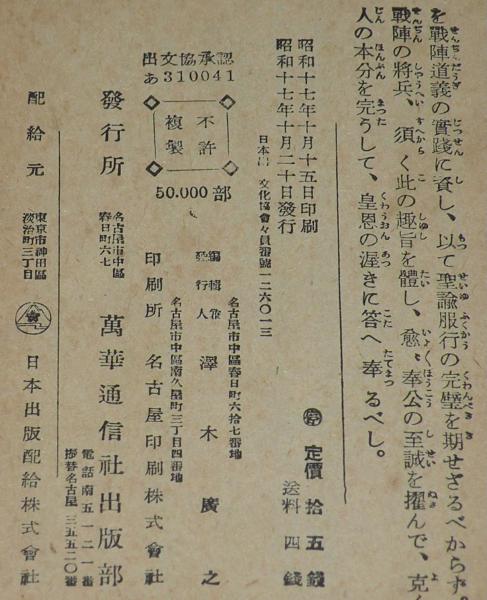 を戰陣道義の實踐に資し、以て聖諭服行の完璧を期せざるべからず。
戰陣の將兵、須く此の趣旨を體し、愈〻奉公の至誠を擢んで、克く
人の本分を完うして、皇恩の渥きに答へ奉るべし。
昭和十七年十月十五日印刷
昭和十七年十月二十日發行
㊞ 定價 拾五錢
送料 四錢
日本出 文化協會々員番號一二六〇一三
出文協承認
あ310041
不許
複製
50.000部
名古屋市中區春日町六拾七番地
編輯兼
發行人 澤木廣之
名古屋市中區南久屋町三丁目四番地
印刷所 名古屋印刷株式會社
發行所 名古屋市中區
春日町六七 萬華通信社出版部
電話南五一二一番
振替名古屋三五五二〇番
配給元 東京市神田區
淡治町三丁目 日本出版配給株式會社